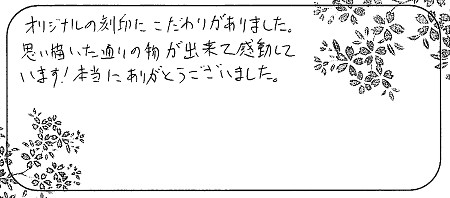 オリジナルの刻印にこだわりがありました。
思い描いた通りの物が出来て感動して
います!本当にありがとうございました。